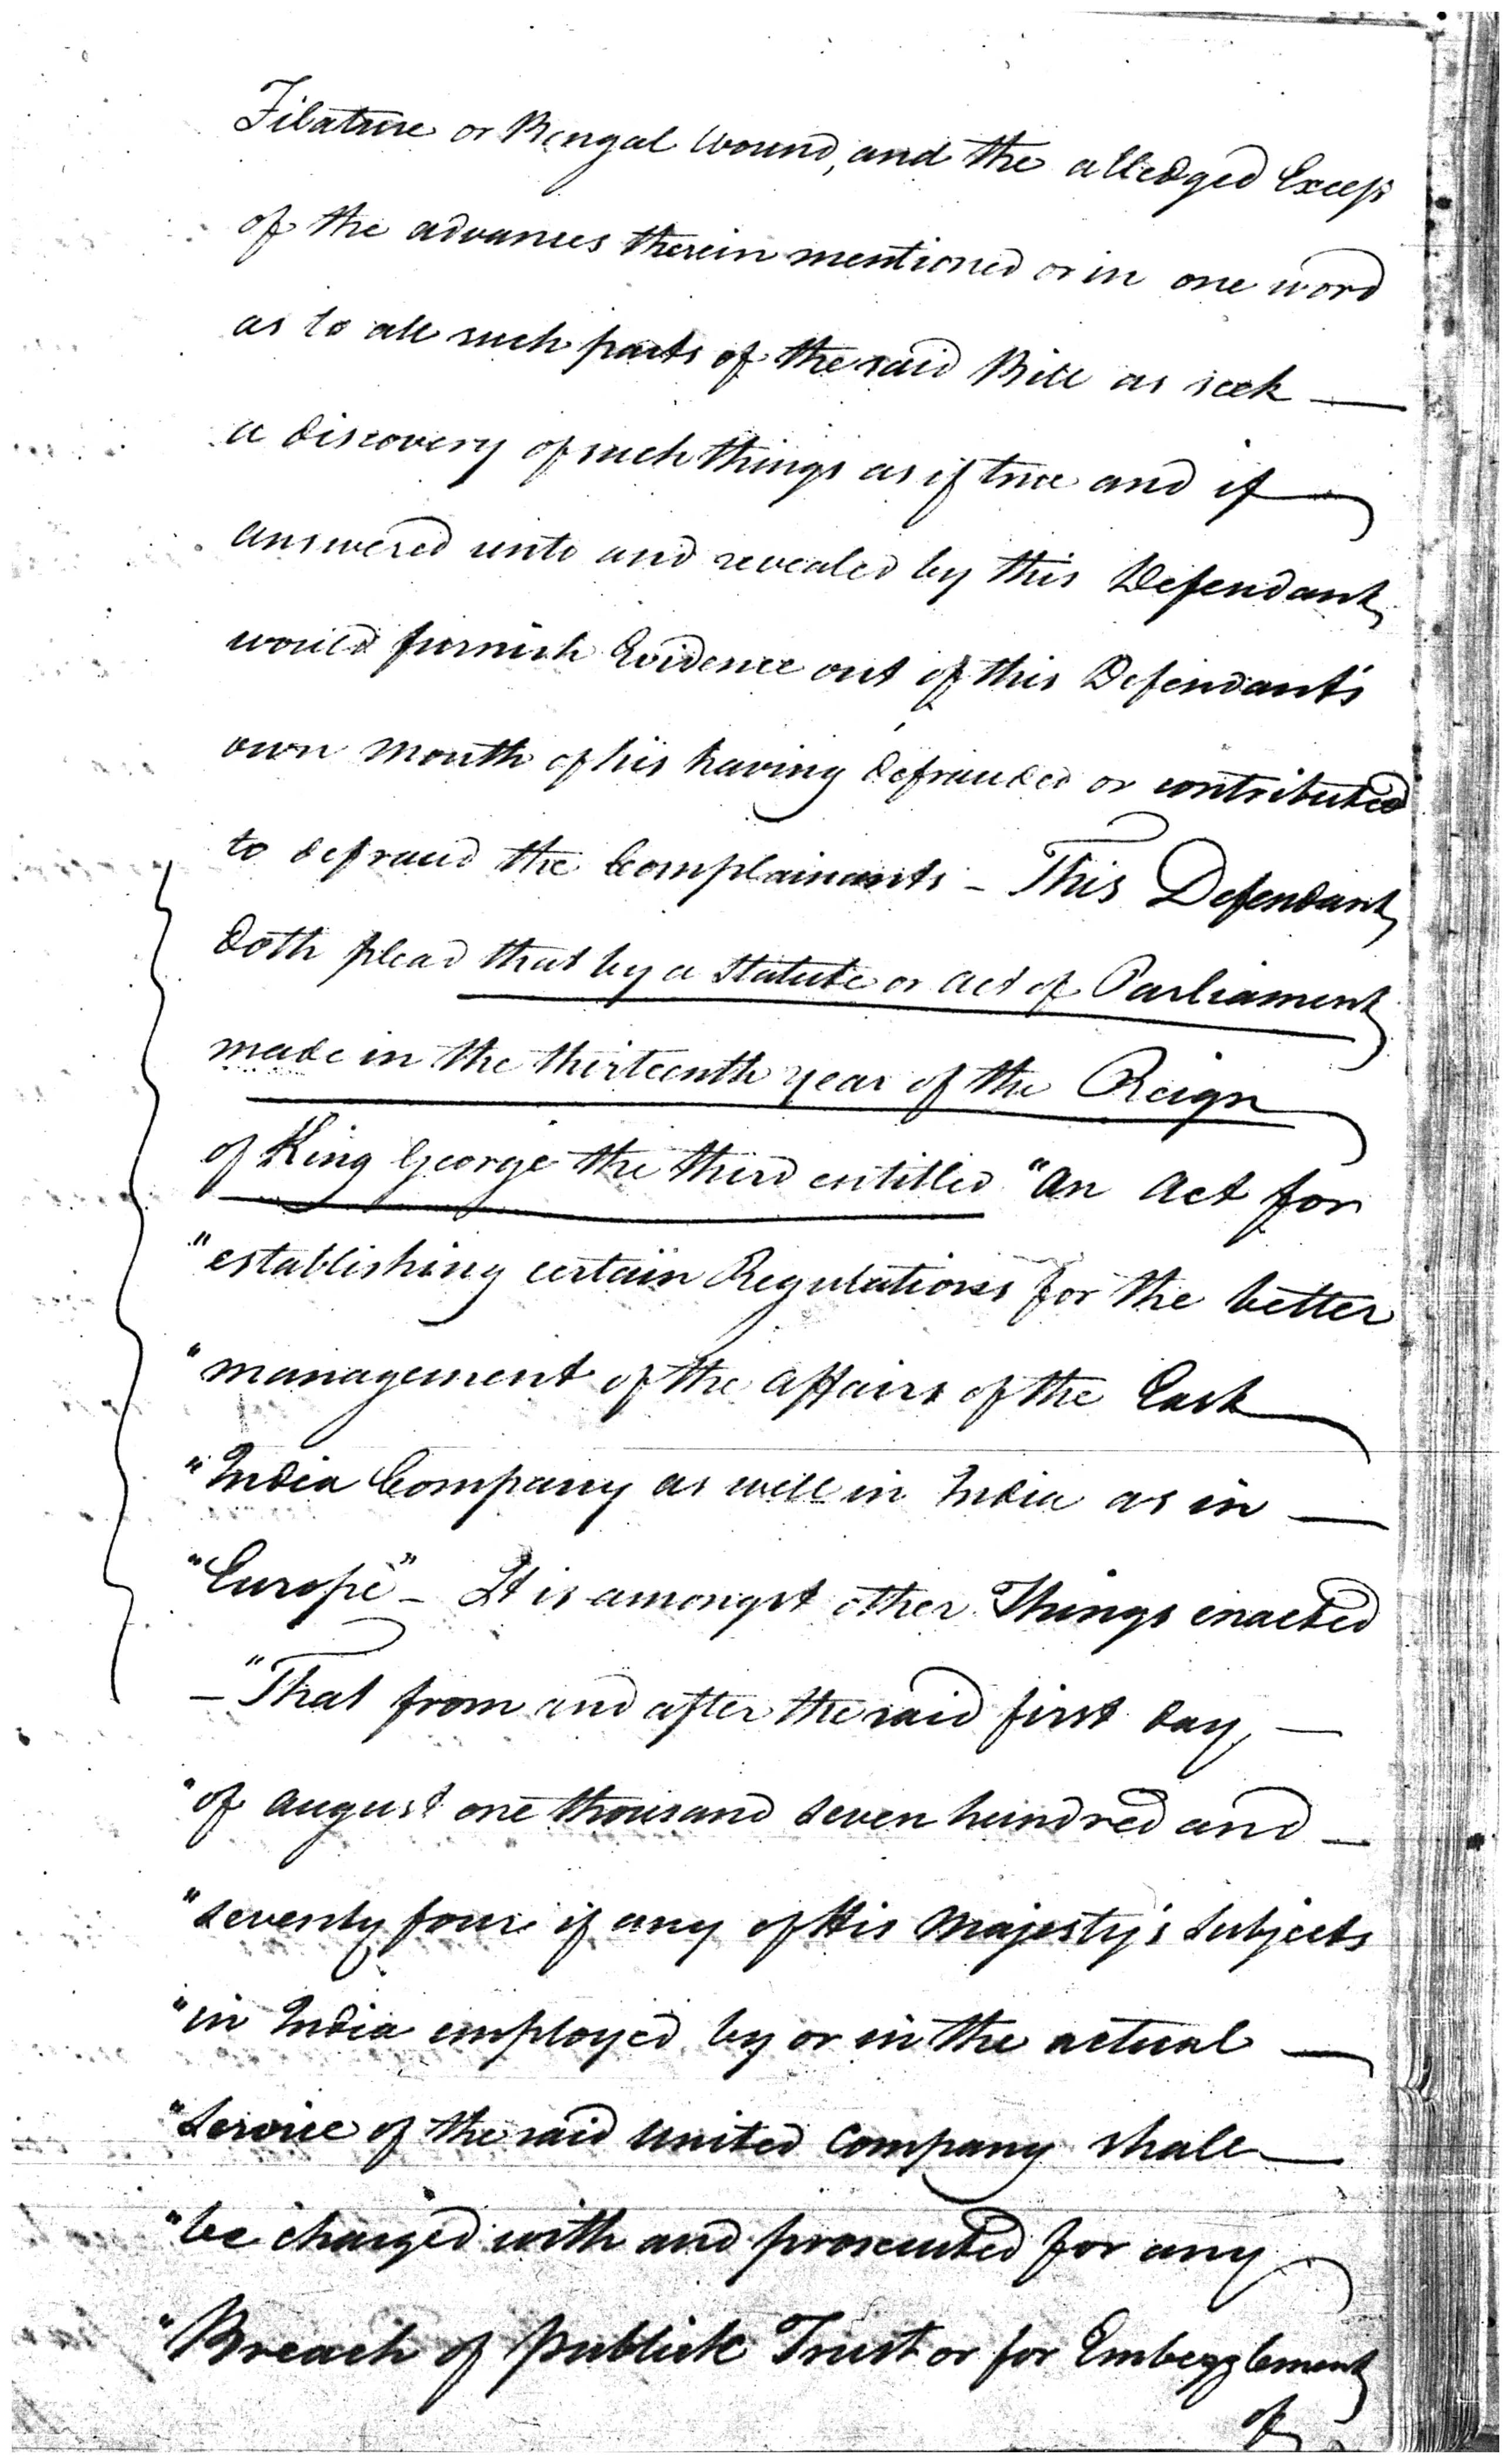 Filature or Bengal Wound, and the alledged Excess
of the advances therein mentioned or in one word
as to all such parts of the said Bill as seek —
a discovery of such things as if true and if
answered unto and revealed by this Defendant
would furnish Evidence out of this Defendant's
own Mouth of his having defrauded or contributed
to defraud the Complainants - This Defendant
doth plead that by a Statute or Act of Parliament
made in the thirteenth year of the Reign
of King George the third entitled "An Act for
"establishing certain Regulations for the better
"management of the Affairs of the East
"India Company as well in India as in —
"Europe" - It is amongst other Things enacted
- "That from and after the said first day, —
"of August one thousand seven hundred and —
"seventy four if any of His Majesty's Subjects
"in India employed by or in the actual —
"Service of the said United Company shall —
"be charged with and prosecuted for any
"Breach of publick Trust or for Embezzlement
of